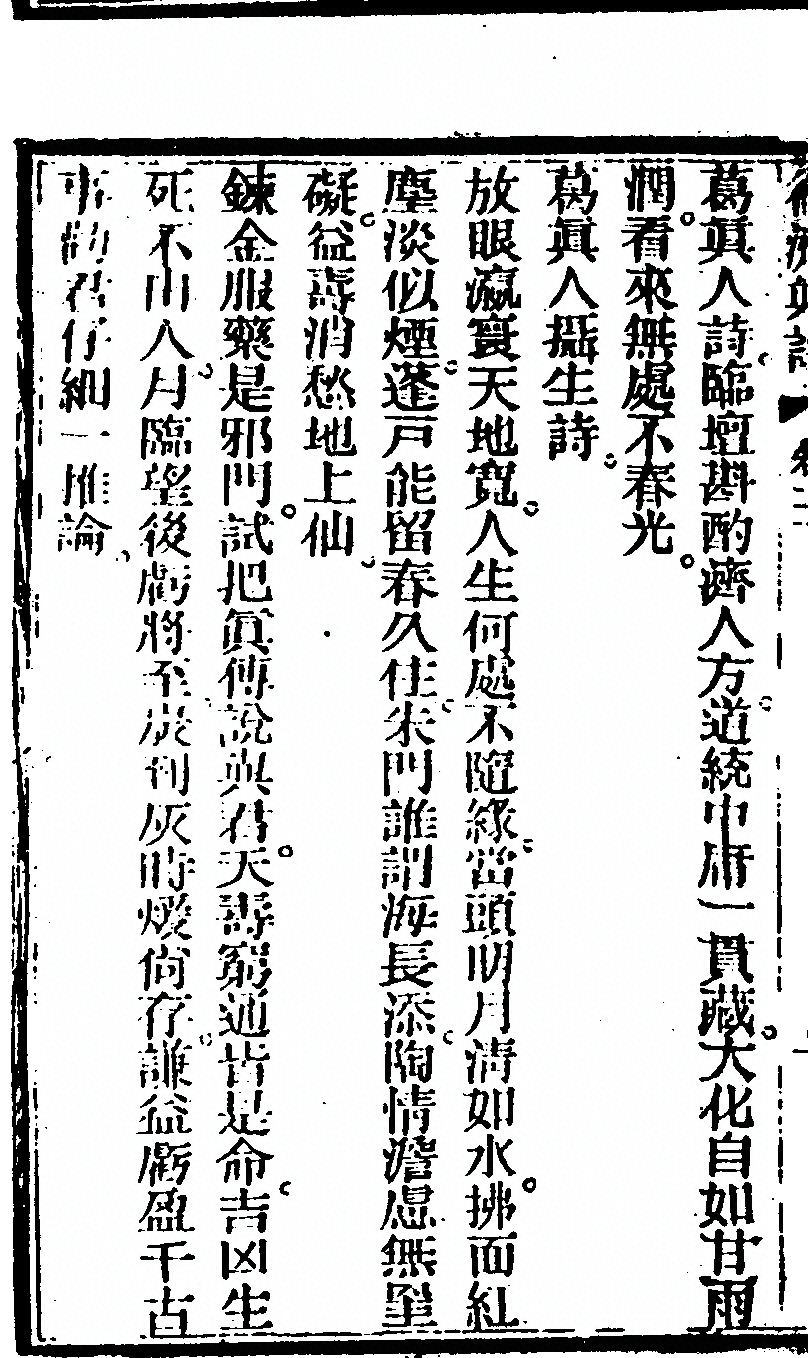 葛眞人詩臨壇斟酌濟人方道統中庸一貫藏大化自如甘雨
潤看來無處不春光
葛眞人攝生詩
放眼瀛寰天地寬人生何處不隨緣當頭明月清如水拂面紅
塵淡似煙蓬戸能留春久住朱門誰謂海長添陶情澹慮無罣
礙益壽消愁地上仙
鍊金服藥是邪門試把眞傳說與君夭壽窮通皆是命吉凶生
死不由人月臨望後虧將至炭到灰時煖尚存謙益虧盈千古
事勸君仔細一推論